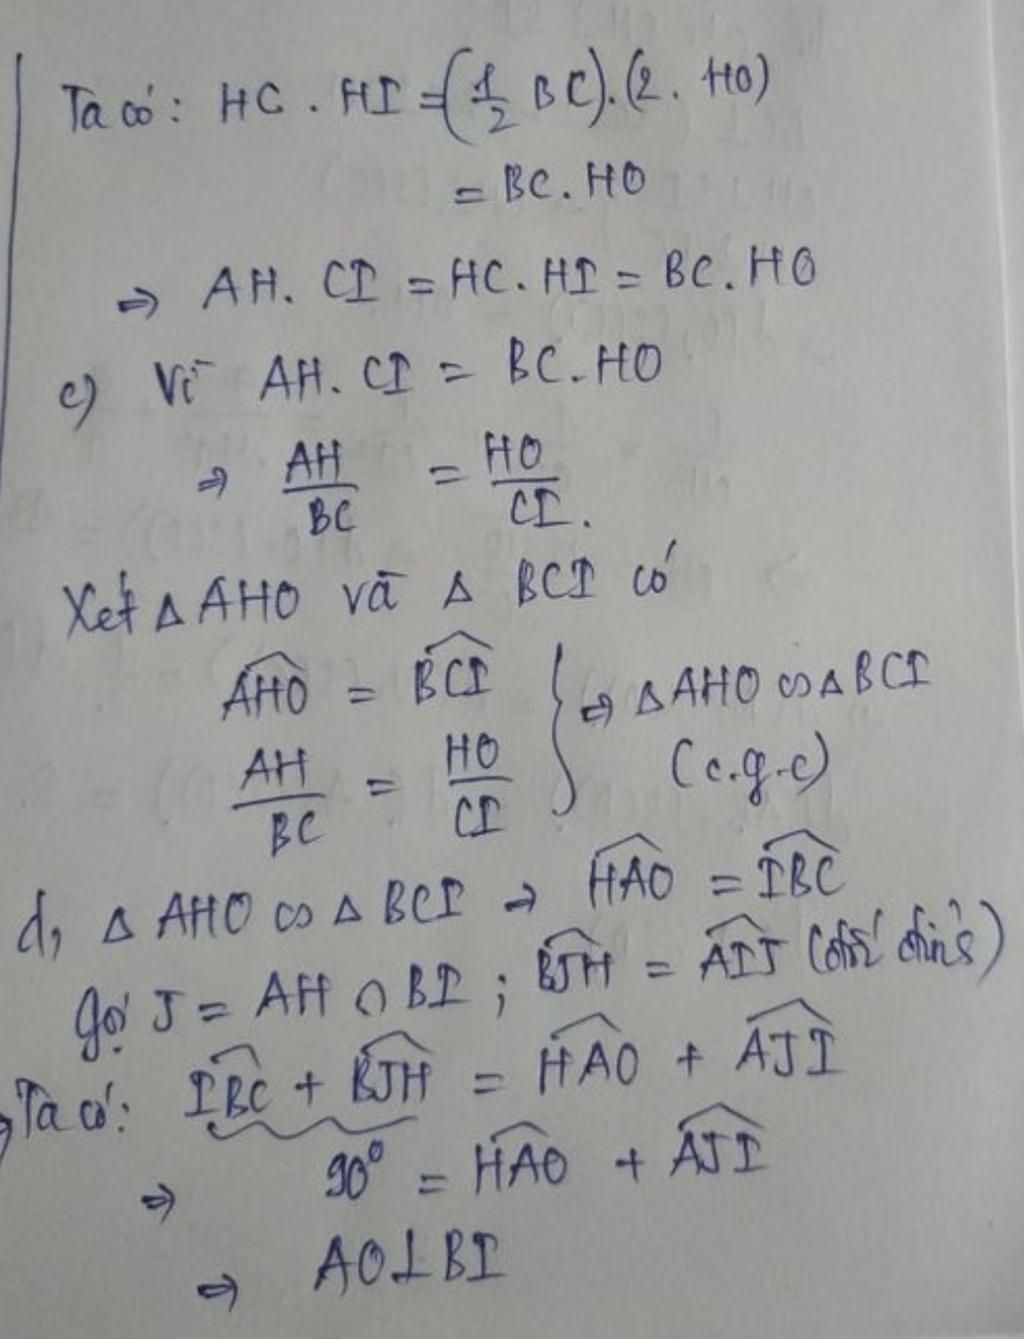 Ta có: HC . HI = (1/2 BC).(2. HO)
= BC. HO
⇒ AH. CI = HC. HI = BC. HO
c) Vì AH. CI = BC. HO
⇒ AH/BC = HO/CI.
Xét △ AHO và △ BCI có
\widehat{AHO} = \widehat{BCI}
AH/BC = HO/CI
} ⇒ △ AHO ∽ △ BCI
(c.g.c)
d, △ AHO ∽ △ BCI ⇒ \widehat{HAO} = \widehat{IBC}
gọi J = AH ∩ BI ; \widehat{BJH} = \widehat{AIJ} (đối đỉnh)
Ta có: \widehat{IBC} + \widehat{BJH} = \widehat{HAO} + \widehat{AJI}
⇒ 90° = \widehat{HAO} + \widehat{AJI}
⇒ AO ⊥ BI